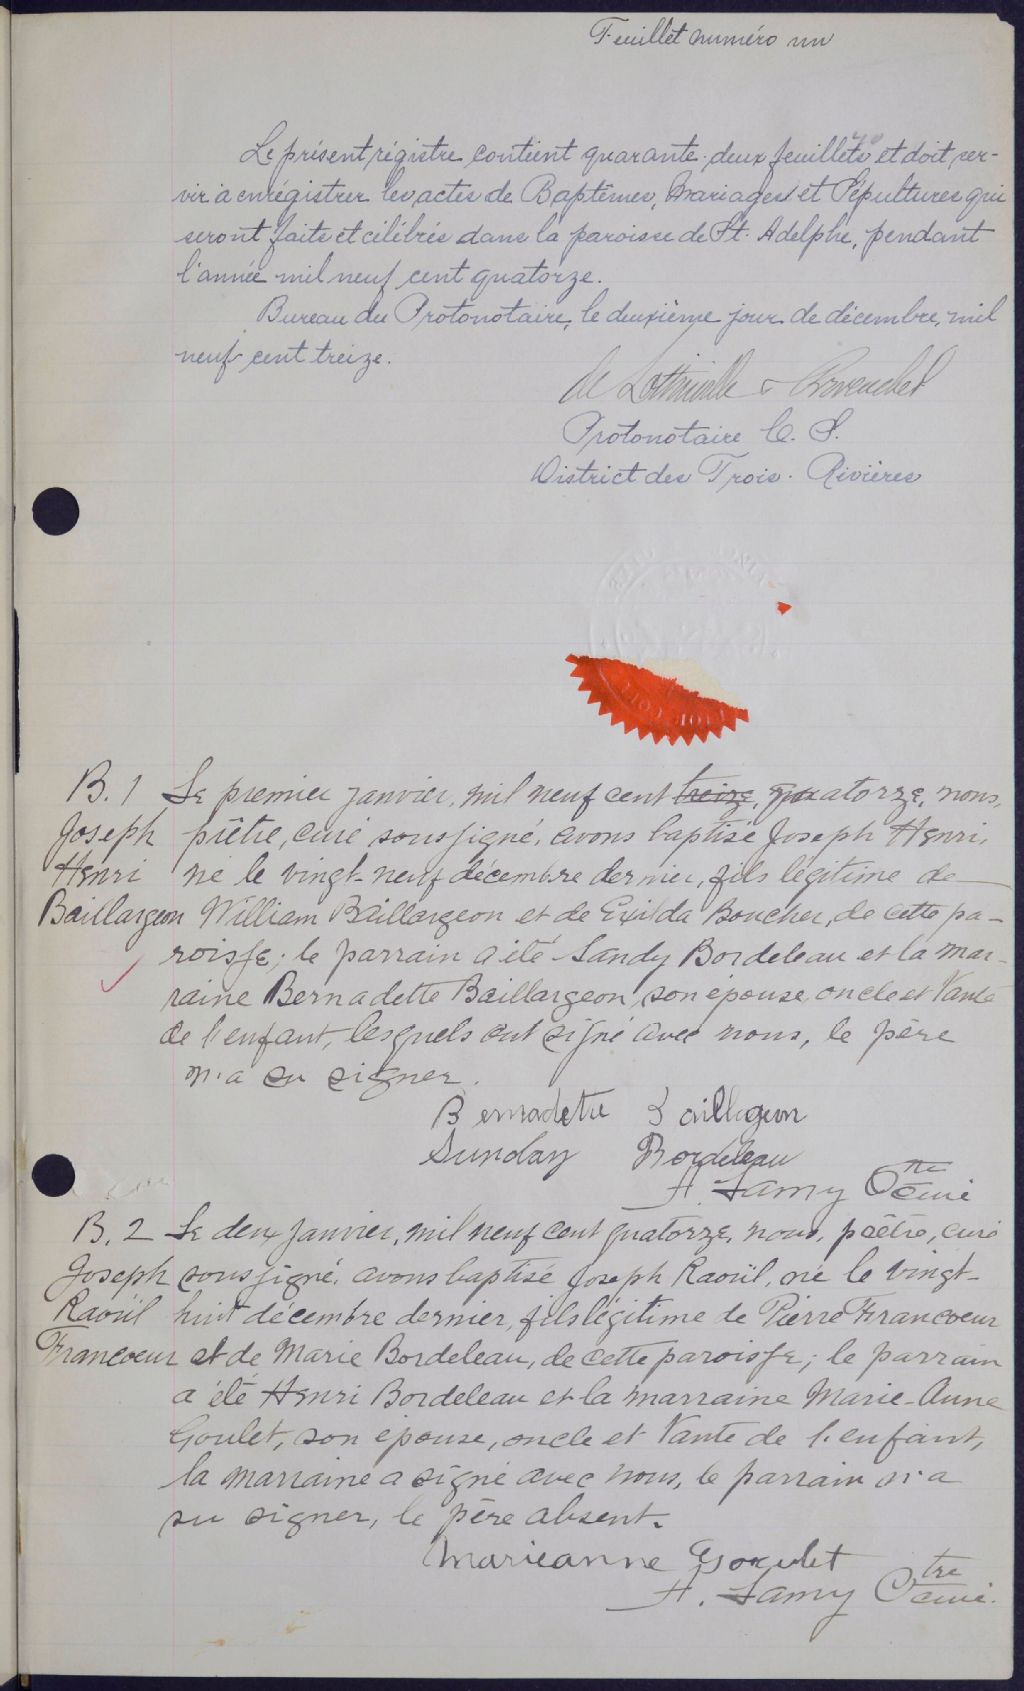 Feuillet numéro un
Le présent régistre contient quarante-deux feuillets et doit ser-
vir à enrégistrer les actes de Baptêmes, Mariages et Sépultures qui
seront faits et célébrés dans la paroisse de St. Adelphe, pendant
l'année mil neuf cent quatorze.
Bureau du Protonotaire, le deuxième jour de décembre, mil
neuf cent treize.
de Lottinville &
Protonotaire C. S.
District des Trois-Rivières
B. 1 Le premier janvier, mil neuf cent treize, quatorze, nous,
Joseph prêtre, curé soussigné, avons baptisé Joseph Henri,
Henri né le vingt-neuf décembre dernier, fils légitime de
Baillargeon William Baillargeon et de Exilda Boucher, de cette pa-
roisse; le parrain a été Sandy Bordeleau et la mar-
raine Bernadette Baillargeon, son épouse, oncle et tante
de l'enfant, lesquels ont signé avec nous, le père
n'a su signer.
Bernadette Baillageon
Sunday Bordeleau
A. Lamy Ptre curé
B. 2 Le deux janvier, mil neuf cent quatorze, nous, prêtre, curé
Joseph soussigné, avons baptisé Joseph Raoül, né le vingt-
Raoül huit décembre dernier, fils légitime de Pierre Francoeur
Francoeur et de Marie Bordeleau, de cette paroisse; le parrain
a été Henri Bordeleau et la marraine Marie-Anne
Goulet, son épouse, oncle et tante de l'enfant,
la marraine a signé avec nous, le parrain n'a
su signer, le père absent.
Marieanne Goulet
A. Lamy Ptre curé.